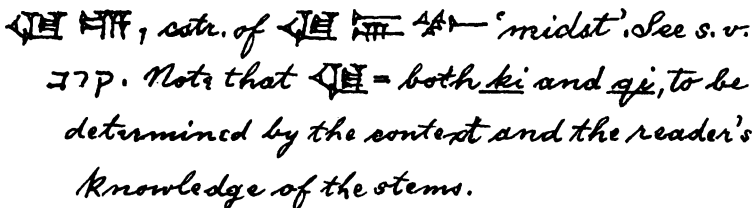 𒆠 𒆗, cstr. of 𒆠 𒅕 𒁍 'midst'. See s.v.
קרב. Note that 𒆠 = both ki and qi, to be
determined by the context and the reader's
knowledge of the stems.